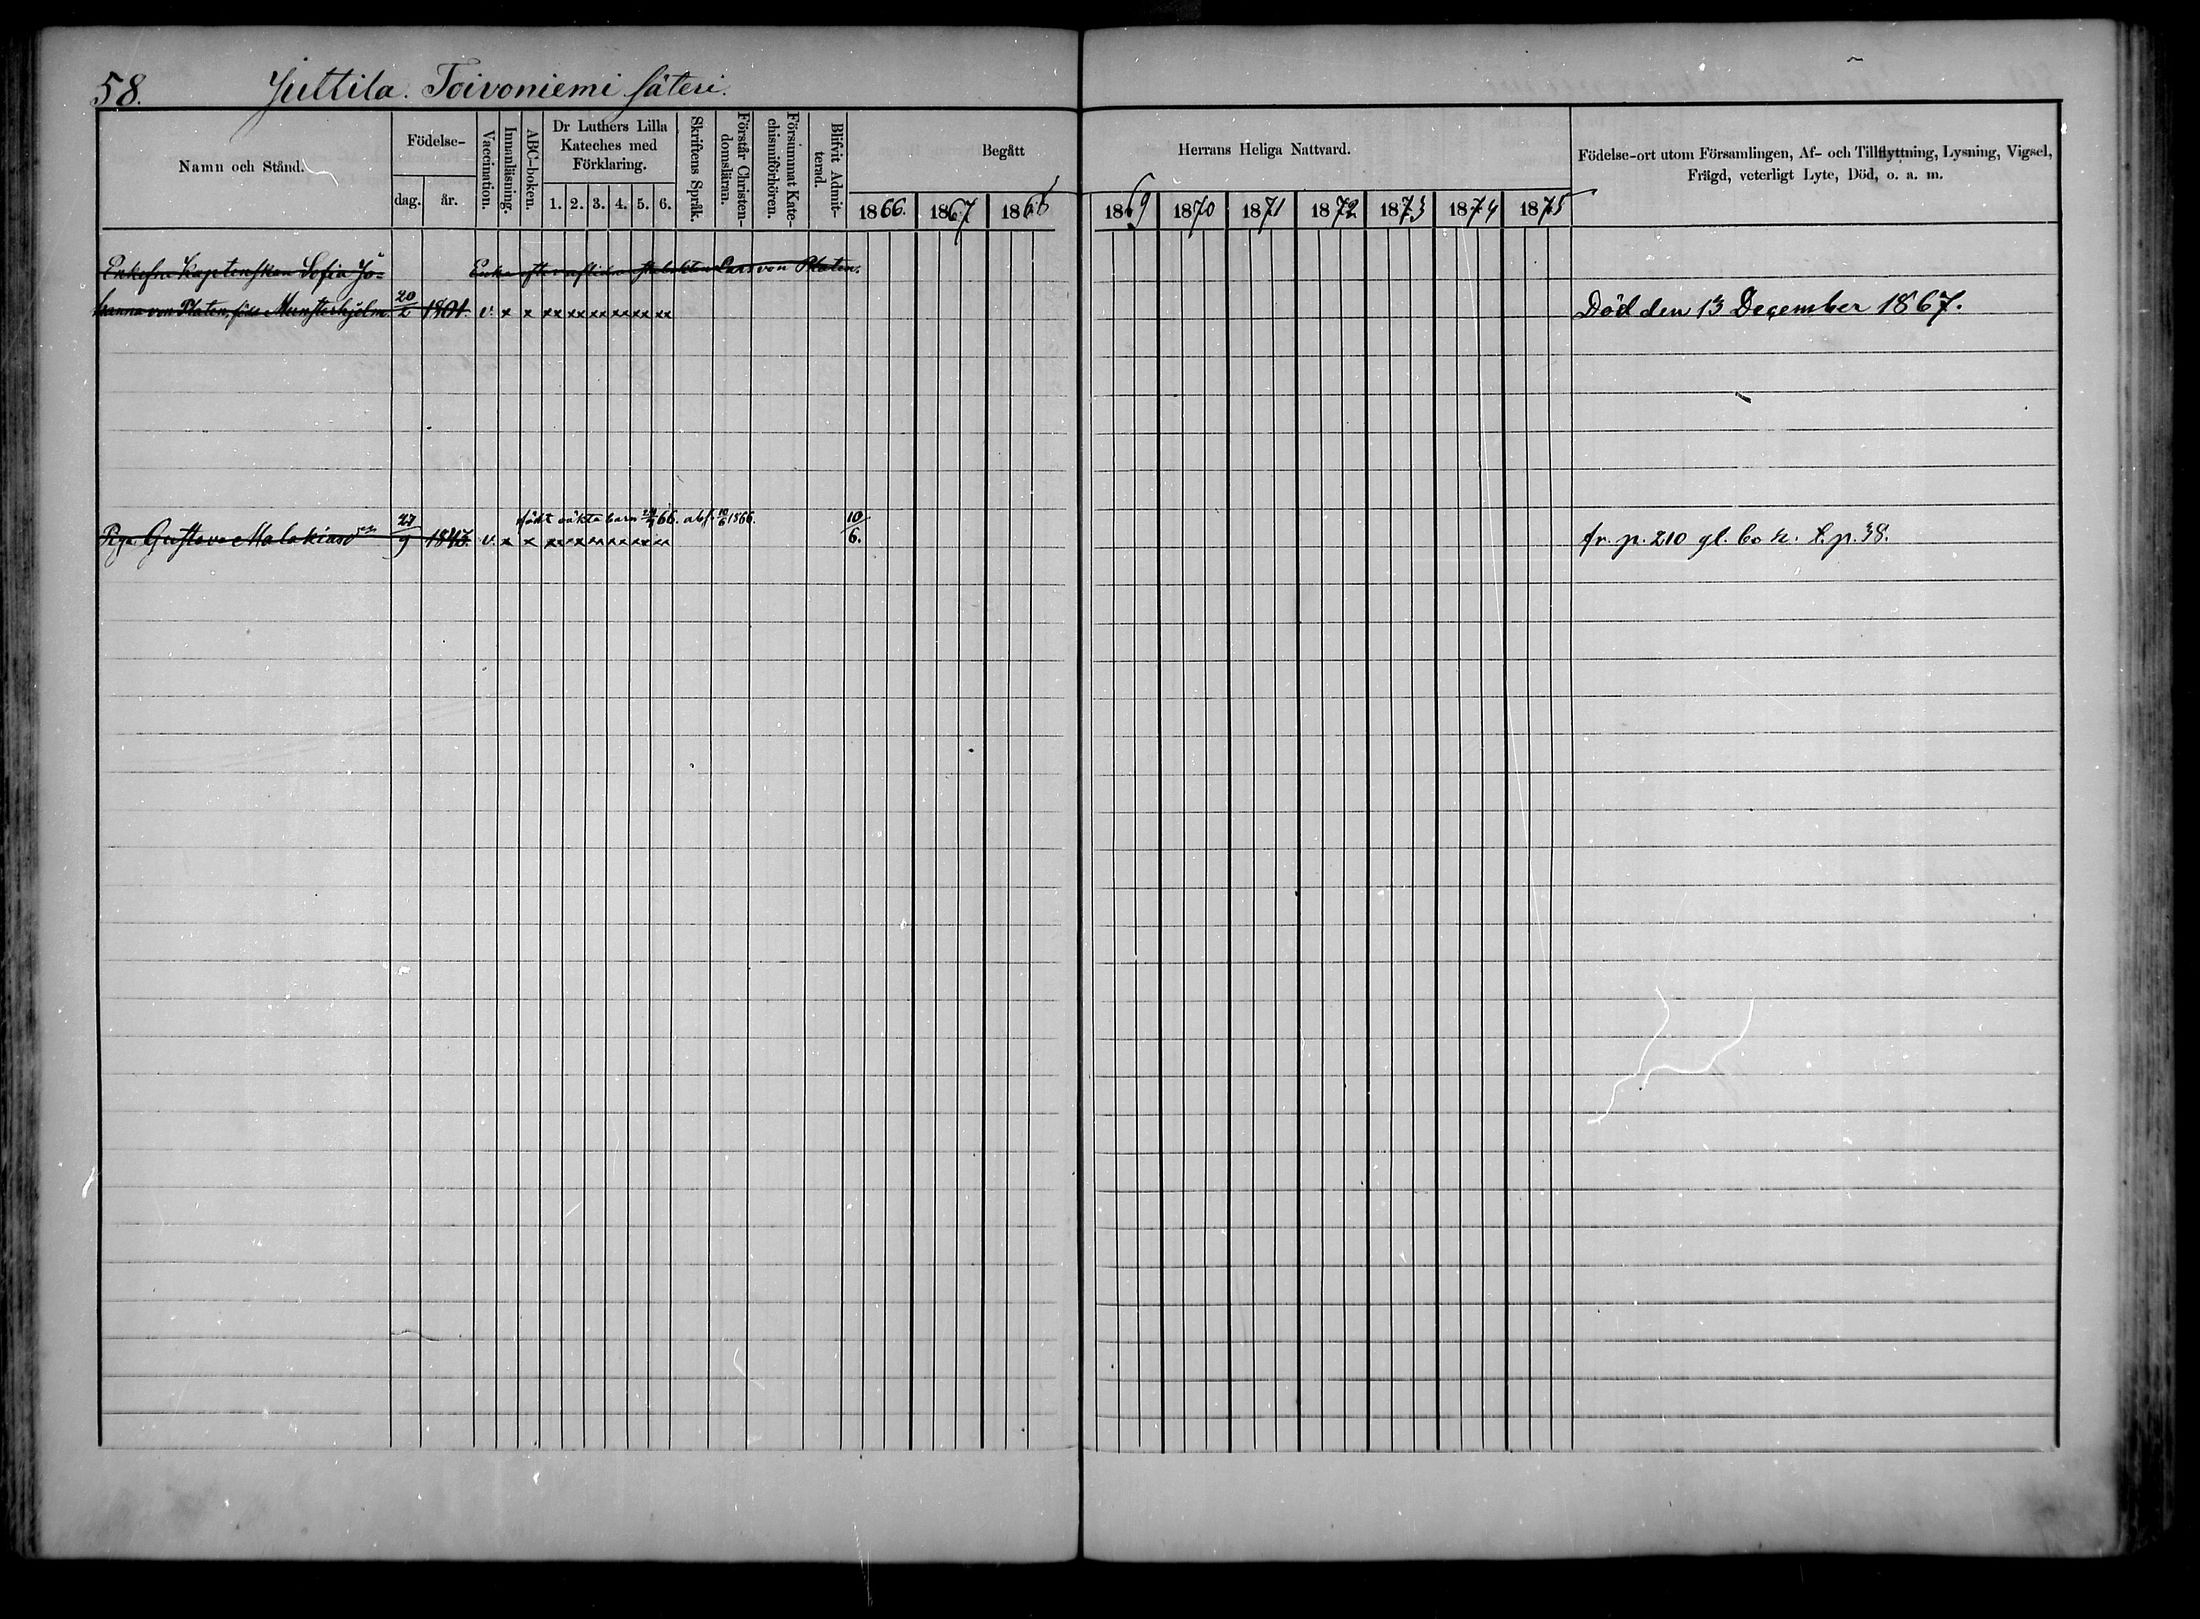 58. Juttila. Toivoniemi säteri.
Namn och Stånd.
Födelse-
dag. år.
Vaccination.
Innanläsning.
ABC-boken.
Dr Luthers Lilla
Kateches med
Förklaring.
1. 2. 3. 4. 5. 6.
Skriftens Språk.
Förstår Christen-
domsläran.
Försummat Kate-
chismiförhören.
Blifvit Admit-
terad.
Begått Herrans Heliga Nattvard.
1866. 1867 1868 1869 1870 1871 1872 1873 1874 1875
Födelse-ort utom Församlingen, Af- och Tillflyttning, Lysning, Vigsel,
Frägd, veterligt Lyte, Död, o. a. m.
Enkefru Kaptenskan Sofia Jo- Enka efter Lars von Platen.
hanna von Platen, född Munsterhjelm 20/2 1801. v. x x xx xx xx xx xx xx Död den 13 December 1867.
födt oäkta barn 66. abs. 10/6 1866.
Piga Gustava Malakiasd 27/9 1843. v. x x xx xx xx xx xx xx 10/6. fr. p. 210 gl. bok. t. p. 38.